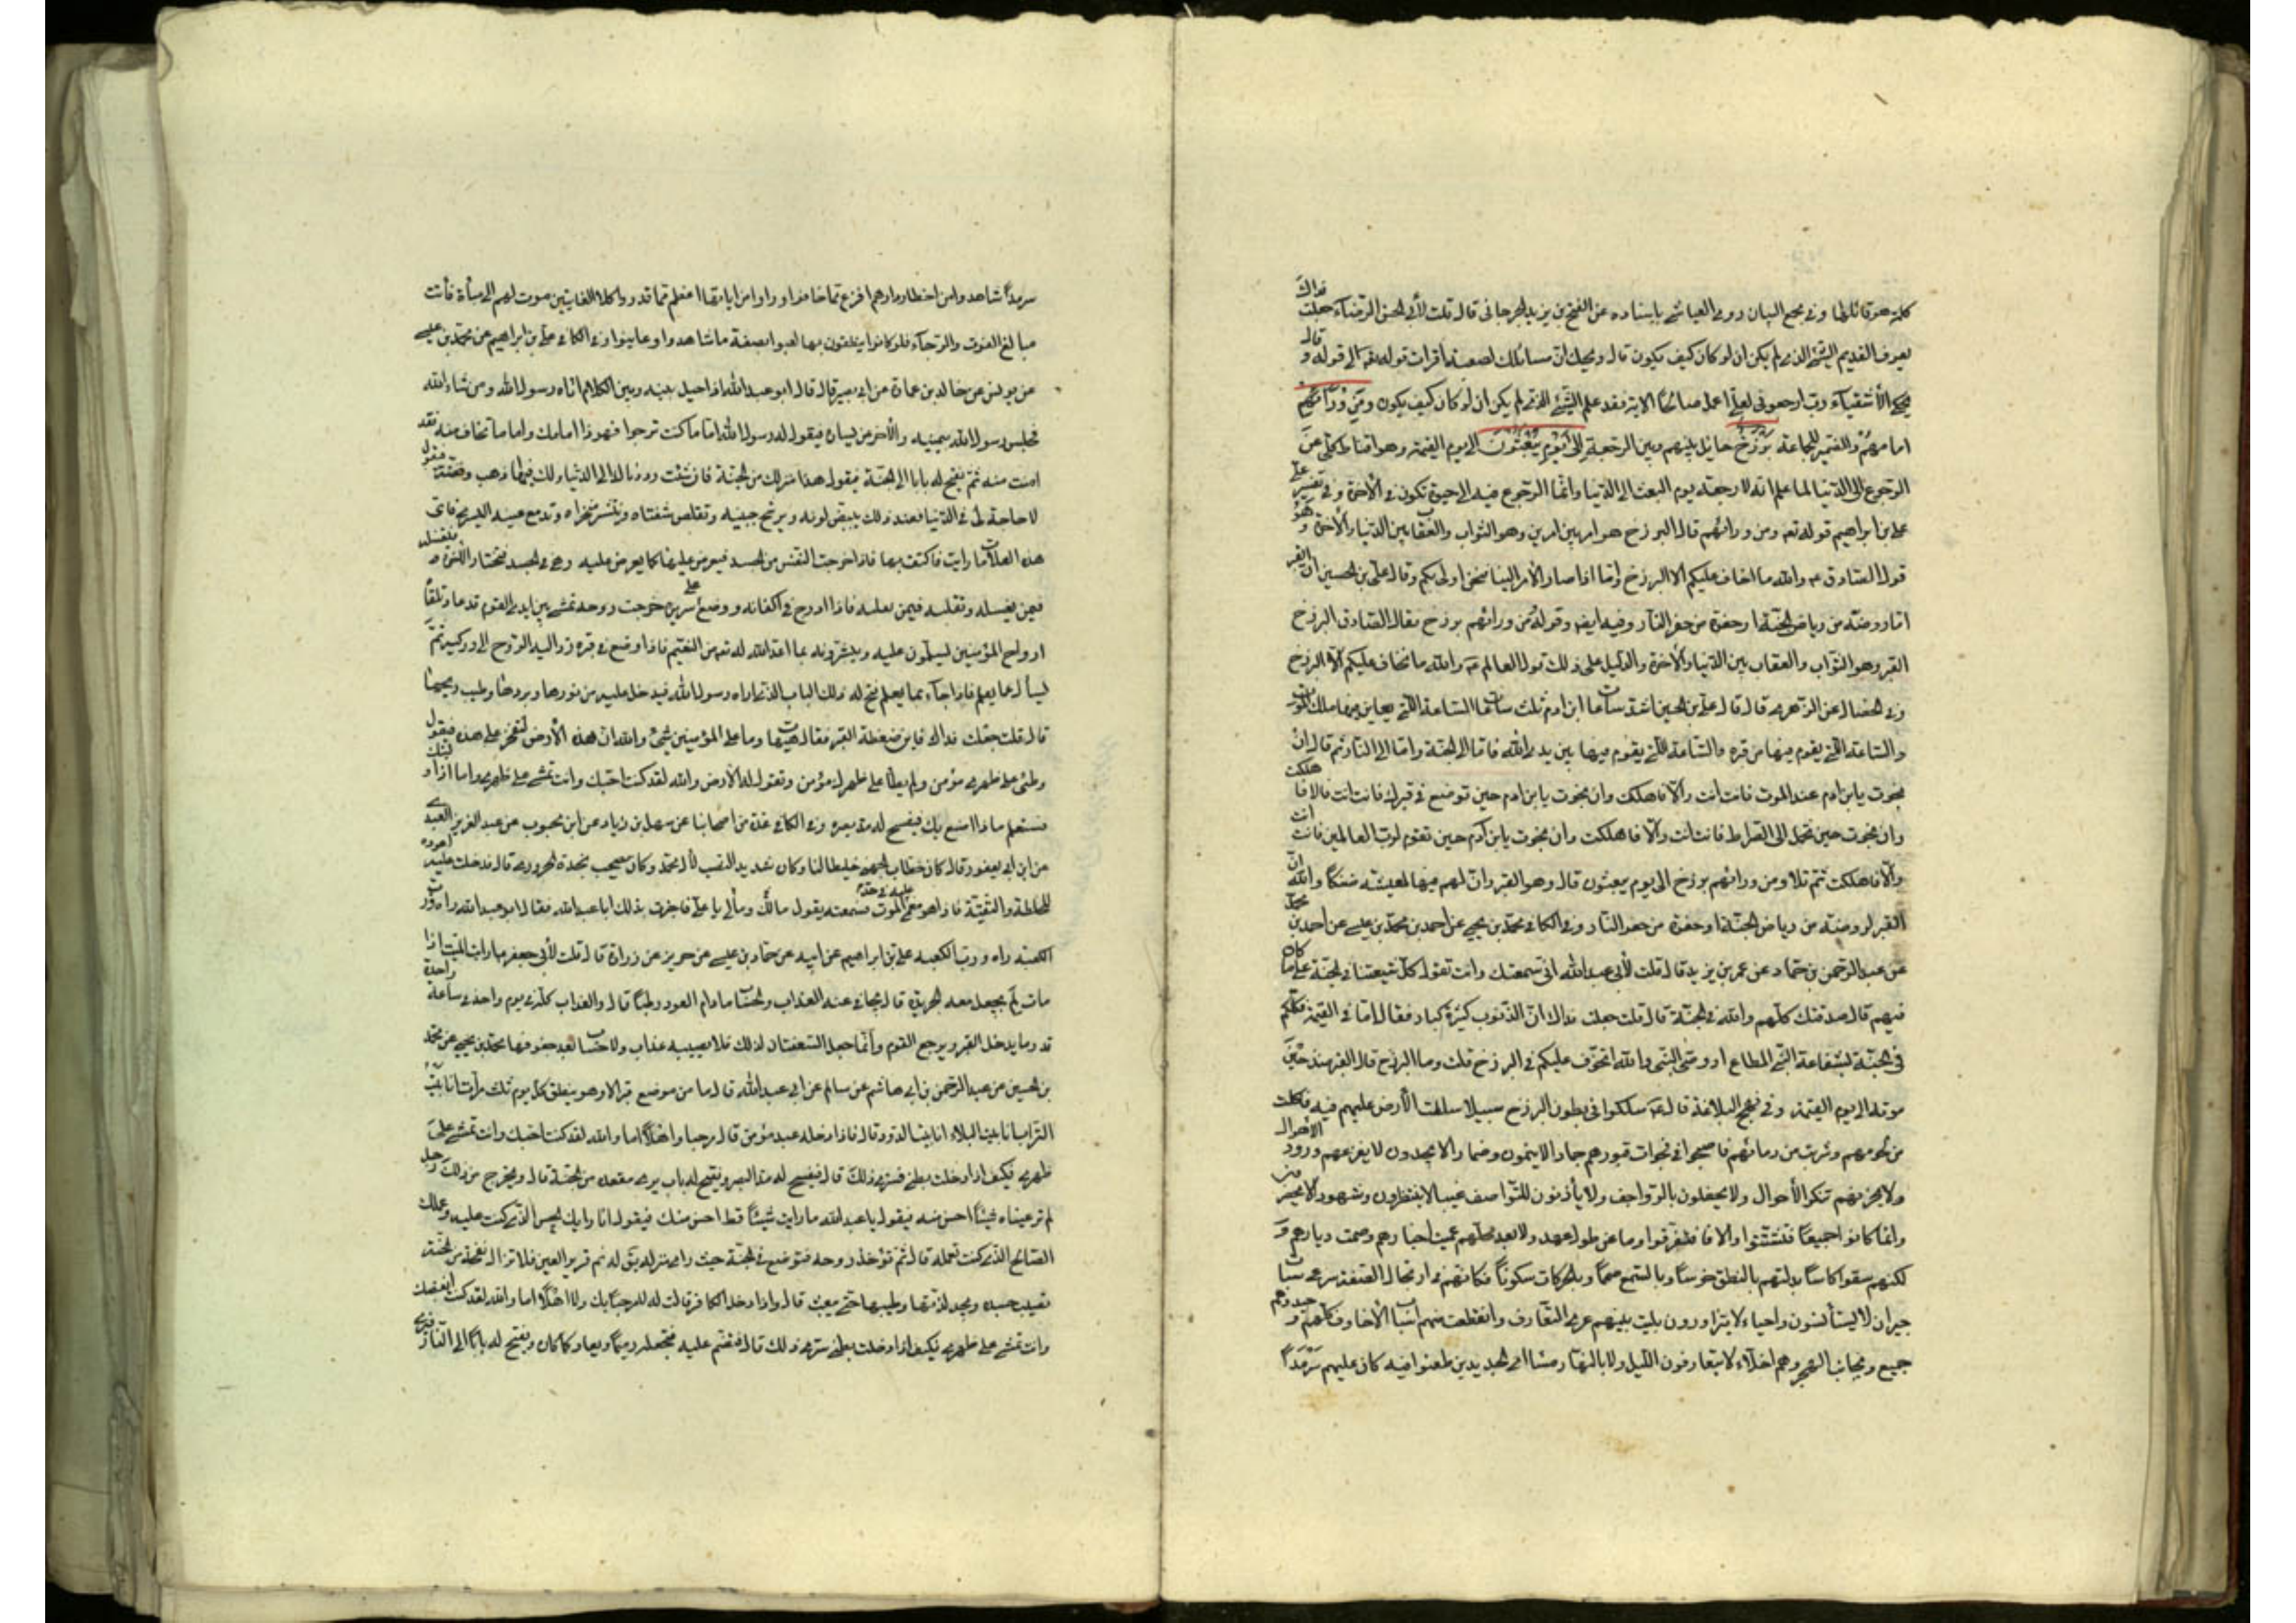 كلمة هو قائلها وفى مجمع البيان روى العياشى باسناده عن الفتح بن يزيد الجرجانى قال قلت لأبى الحسن الرضاء جعلت فداك
يعرف القديم الشئ الذى لم يكن ان لو كان كيف يكون قال ويحك ان مسائلك لصعبة اما قرات قوله تعالى الى قوله و قال
يحكى الأشقياء رب ارجعونى لعلى اعمل صالحاً الاية فقد علم الشئ الذى لم يكن ان لو كان كيف يكون ومن ورائهم
امامهم والضمير للجماعة برزخ حايل بينهم وبين الرجعة الى يوم يبعثون الى يوم القيمة وهو اقناط كلى من
الرجوع الى الدنيا لما علم انه لا رجعة يوم البعث الى الدنيا وانما الرجوع فيه الى حيوة تكون فى الأخرة وفى تفسير على
على بن ابراهيم قوله تعه ومن ورائهم قال البرزخ هو امر بين امرين وهو الثواب والعقاب بين الدنيا والأخرة و هو
قول الصادق عه والله ما اخاف عليكم الا البرزخ واما اذا صار الأمر الينا فنحن اولى بكم وقال على بن الحسين ان القبر
اما روضة من رياض الجنة او حفرة من حفر النار وفيه ايضه وقوله من ورائهم برزخ فقال الصادق البرزخ
القبر وهو الثواب والعقاب بين الدنيا والأخرة والدليل على ذلك قول العالم عه والله ما نخاف عليكم الا البرزخ
وفى الخصال عن الزهرى قال قال على بن الحسين اشد ساعات ابن ادم ثلث ساعات الساعة التى يعاين فيها ملك الموت
والساعة التى يقوم فيها من قبره والساعة التى يقوم فيها بين يدى الله فاما الى الجنة واما الى النار ثم قال ان
نجوت يابن ادم عند الموت فانت انت والا فاهلكت وان نجوت يابن ادم حين توضع فى قبرك فانت انت والا فا هلكت
وان نجوت حين تحمل الى الصراط فانت انت والا فاهلكت وان نجوت يابن آدم حين تقوم لرب العالمين فانت انت
والا فاهلكت ثم تلا ومن ورائهم برزخ الى يوم يبعثون قال وهو القبر وان لهم فيها لمعيشة ضنكاً والله ان
القبر لروضة من رياض الجنة او حفرة من حفر النار وفى الكافى محمد بن يحيى عن احمد بن محمد بن عيسى عن احمد بن محمد
عن عبد الرحمن بن حماد عن عمر بن يزيد قال قلت لأبى عبد الله انى سمعتك وانت تقول كل شيعتنا فى الجنة على ما كان
فيهم قال صدقتك كلهم والله فى الجنة قال قلت جعلت فداك ان الذنوب كثيرة كبار فقال اما فى القيمة فكلكم
فى الجنة بشفاعة النبى المطاع او وصى النبى والله اتخوف عليكم فى البرزخ قلت وما البرزخ قال القبر منذ حين
موته الى يوم القيمة وفى نهج البلاغة قال عه سلكوا فى بطون البرزخ سبيلا سلطت الأرض عليهم فيه فاكلت
من لحومهم وشربت من دمائهم فاصبحوا فى فجوات قبورهم جمادا لا ينمون وضمارا لا يوجدون لا يفزعهم ورود الأهوال
ولا يحزنهم تنكر الأحوال ولا يحفلون بالرواجف ولا يأذنون للقواصف غيبا لا ينتظرون وشهودا لا يحضرون
وانما كانوا جميعاً فتشتتوا والافا فتفرقوا وما عن طول عهد ولا بعد محلهم عميت اخبارهم وصمت ديارهم و
لكنهم سقوا كاساً بدلتهم بالنطق خرساً وبالسمع صمماً وبالحركات سكوناً فكانهم فى ارتجال الصفة صرعى سبات
جيران لا يستأنسون واحياء لا يتزاورون بليت بينهم عرى التعارف وانقطعت منهم اسباب الأخا فكلهم وحيد وهم
جميع وبجانب الهجر وهم اخلاء لا يتعارفون الليل ولا بالنهار مشا اى الجديدين ظعنوا فيه كان عليهم سرمداً
سرمداً شاهدوا من اخطار دارهم افزع مما خافوا وراوا من اياتها اعظم مما قدروا كلا الغايتين مدت لهم الى مبأة فأتت
مبالغ الخوف والرجاء فلو كانوا ينطقون بها لعيوا بصفة ما شاهدوا وعاينوا وفى الكافى على بن ابراهيم عن محمد بن عيسى
عن يونس عن خالد بن عمارة عن ابى بصير قال قال ابو عبد الله اذا حيل بينه وبين الكلام اتاه رسول الله ومن شاء الله
فجلس رسول الله بيمينه والأخر من يساره فيقول له رسول الله اما ما كنت ترجوا فهو ذا امامك واما ما تخاف منه فقد
امنت منه ثم يفتح له بابا الى الجنة فيقول هذا منزلك من الجنة فان شئت رددناك الى الدنيا ولك فيها ذهب وفضة فيقول
لا حاجة لى فى الدنيا فعند ذلك يبيض لونه ويرشح جبينه وتقلص شفتاه وتنتشر منخراه وتدمع عينه اليسرى فاى
هذه العلامات رايت فاكتف بها فاذا خرجت النفس من الجسد فيعرض عليها كما يعرض عليه وهى فى الجسد فتختار الأخرة فتغسله
فيمن يغسله وتقلبه فيمن يقلبه فاذا ادرج فى اكفانه ووضع على سريره خرجت روحه تمشى بين ايدى القوم قدما وتلقاه
ارواح المؤمنين يسلمون عليه ويبشرونه بما اعد الله له تعه من النعيم فاذا وضع فى قبره رد اليه الروح الى وركيه ثم
يسأل عما يعلم فاذا جاء بما يعلم فتح له ذلك الباب الذى اراه رسول الله فيدخل عليه من نورها وبردها وطيب ريحها
قال قلت جعلت فداك فاين ضغطة القبر فقال هيهات ما على المؤمنين شئ والله ان هذه الأرض لتفخر على هذه فيقول
وطئ على ظهرى مؤمن ولم يطأ على ظهرك مؤمن وتقول له الأرض والله لقد كنت احبك وانت تمشى على ظهرى واما اذا وليتك
فستعلم ماذا اصنع بك فيفسح له مد بصره وفى الكافى عدة من اصحابنا عن سهل بن زياد عن ابن محبوب عن عبد العزيز العبدى
عن ابن ابى يعفور قال كان خطاب الجهنى خليطا لنا وكان شديد النصب لأل محمد وكان يصحب نجدة الحرورى قال فدخلت عليه اعوده
للخلطة والتقية فاذا هو مغمى عليه فى حد الموت فسمعته يقول مالك ومالى يا على فاخبرت بذلك ابا عبد الله فقال ابو عبد الله راه ورب
الكعبة راه ورب الكعبة على بن ابراهيم عن ابيه عن حماد بن عيسى عن حريز عن زرارة قال قلت لأبى جعفر ارايت الميت اذا
مات لم يجعل معه الجريدة قال يجافى عنه العذاب والحساب ما دام العود رطبا قال والعذاب كله فى يوم واحد فى ساعة واحدة
قدر ما يدخل القبر ويرجع القوم وانما جعل السعفتان لذلك فلا يصيبه عذاب ولا حساب بعد جفوفهما محمد بن يحيى عن محمد
بن الحسين عن عبد الرحمن بن ابى هاشم عن سالم عن ابى عبد الله قال ما من موضع قبر الا وهو ينطق كل يوم ثلث مرات انا بيت
التراب انا بيت البلاء انا بيت الدود قال فاذا دخله عبد مؤمن قال مرحبا واهلاً اما والله لقد كنت احبك وانت تمشى على
ظهرى فكيف اذا دخلت بطنى فسترى ذلك قال فيفسح له مد البصر ويفتح له باب يرى مقعده من الجنة قال ويخرج من ذلك رجل
لم تر عيناه شيئاً احسن منه فيقول يا عبد الله ما رايت شيئاً قط احسن منك فيقول انا رايك الحسن الذى كنت عليه وعملك
الصالح الذى كنت تعمله قال ثم تؤخذ روحه فتوضع فى الجنة حيث راى منزله ثم يق له نم قرير العين فلا تزال نفحة من الجنة
تصيب جسده ويجد لذتها وطيبها حتى يبعث قال واذا دخل الكافر قالت له لا مرحباً بك ولا اهلاً اما والله لقد كنت ابغضك
وانت تمشى على ظهرى فكيف اذا دخلت بطنى سترى ذلك قال فتضم عليه فتجعله رميماً ويعاد كما كان ويفتح له باباً الى النار فيرى